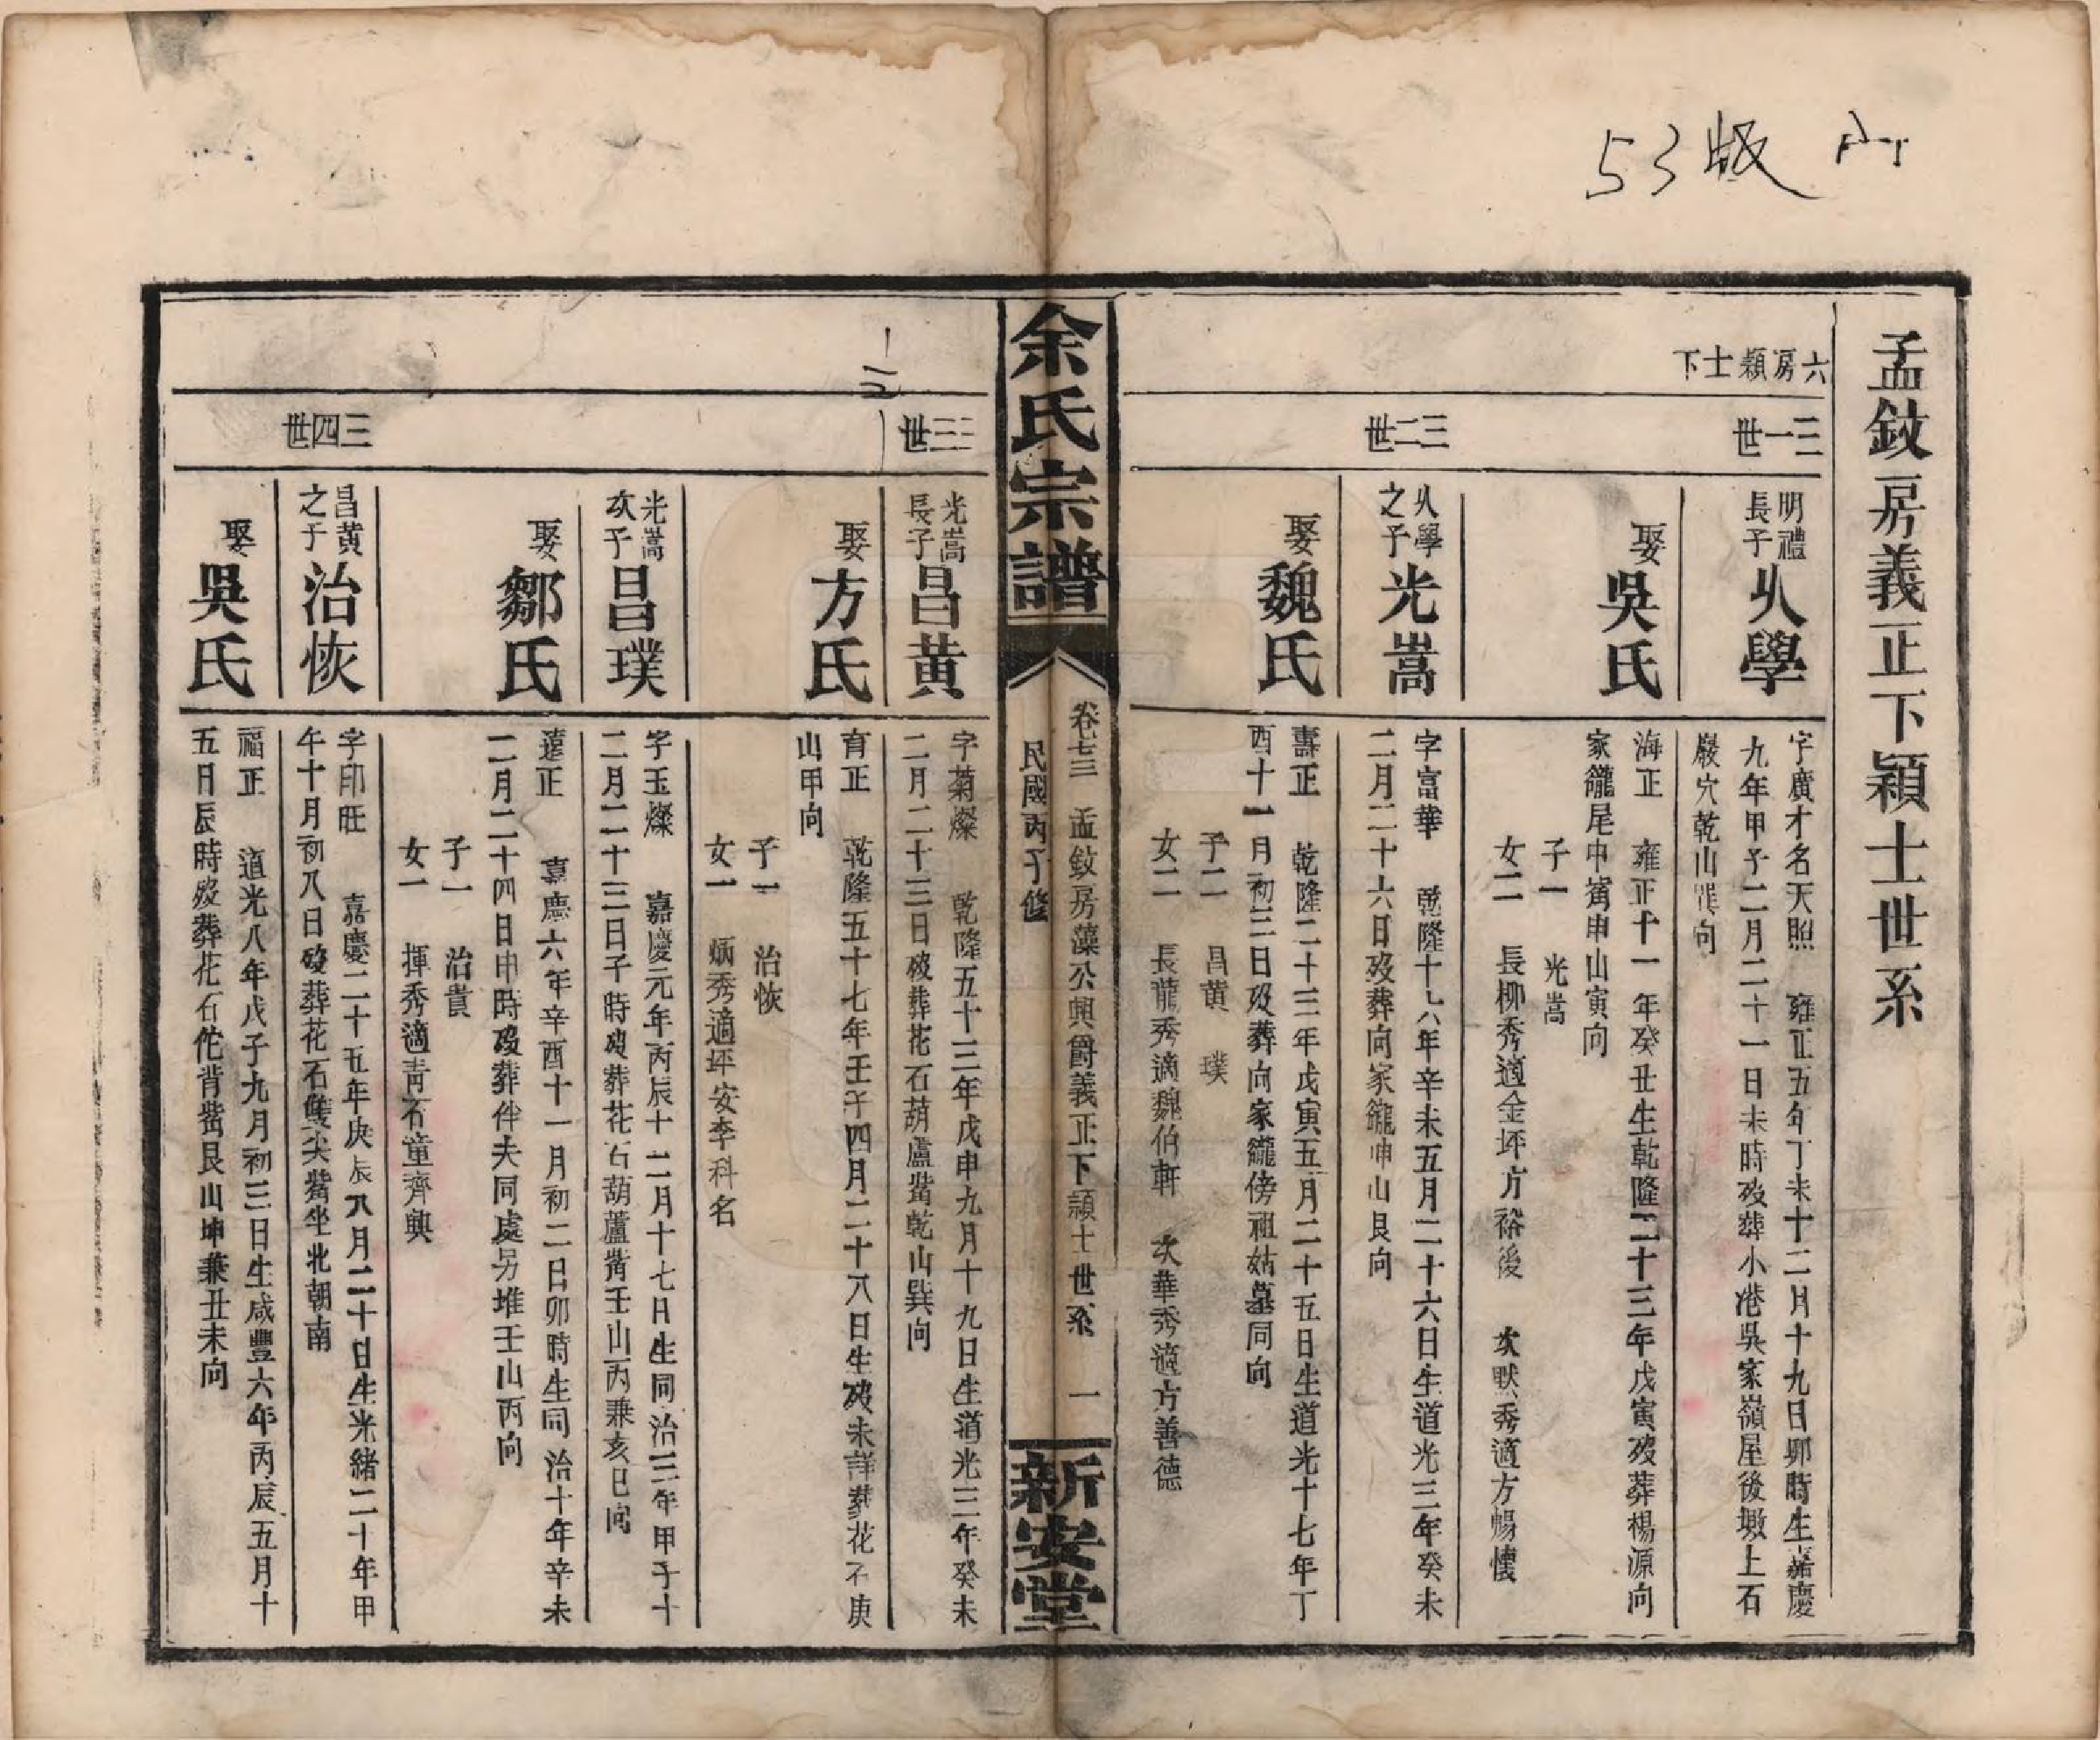 53版
孟鈙房義正下穎士世系
六房穎士下
三一世
明禮
長子
火學
字廣才名天照 雍正五年丁未十二月十九日卯時生嘉慶
九年甲子二月二十一日未時歿葬小港吳家嶺屋後墩上石
嚴穴乾山巽向
娶
吳氏
海正 雍正十一年癸丑生乾隆二十三年戊寅歿葬楊源向
家籠尾中嵜申山寅向
子一 光嵩
女二 長柳秀適金坪方裕後 次默秀適方暢懷
三二世
火學
之子
光嵩
字富華 乾隆十六年辛未五月二十六日生道光三年癸未
二月二十六日歿葬向家籠坤山艮向
娶
魏氏
壽正 乾隆二十三年戊寅五月二十五日生道光十七年丁
酉十一月初三日歿葬向家籠傍祖姑墓同向
子二 昌黄 璞
女二 長龍秀適魏伯軒 次華秀適方善德
余氏宗譜
卷七三 孟鈙房藻公興爵義正下穎士世系 一
民國丙子修
新安堂
三三世
光嵩
長子
昌黄
字菊燦 乾隆五十三年戊申九月十九日生道光三年癸未
二月二十三日歿葬花石葫蘆嵜乾山巽向
娶
方氏
育正 乾隆五十七年壬子四月二十八日生歿未詳葬花石庚
山甲向
子一 治恢
女一 炳秀適坪安李科名
光嵩
次子
昌璞
字玉燦 嘉慶元年丙辰十二月十七日生同治三年甲子十
二月二十三日子時歿葬花石葫蘆嵜壬山丙兼亥巳向
娶
鄒氏
遠正 嘉慶六年辛酉十一月初二日卯時生同治十年辛未
二月二十四日申時歿葬伴夫同處另堆壬山丙向
子一 治貲
女一 揮秀適青石童齊興
三四世
昌黄
之子
治恢
字印旺 嘉慶二十五年庚辰八月二十日生光緒二十年甲
午十月初八日歿葬花石雙尖嵜坐北朝南
娶
吳氏
福正 道光八年戊子九月初三日生咸豐六年丙辰五月十
五日辰時歿葬花石佗背嵜艮山坤兼丑未向